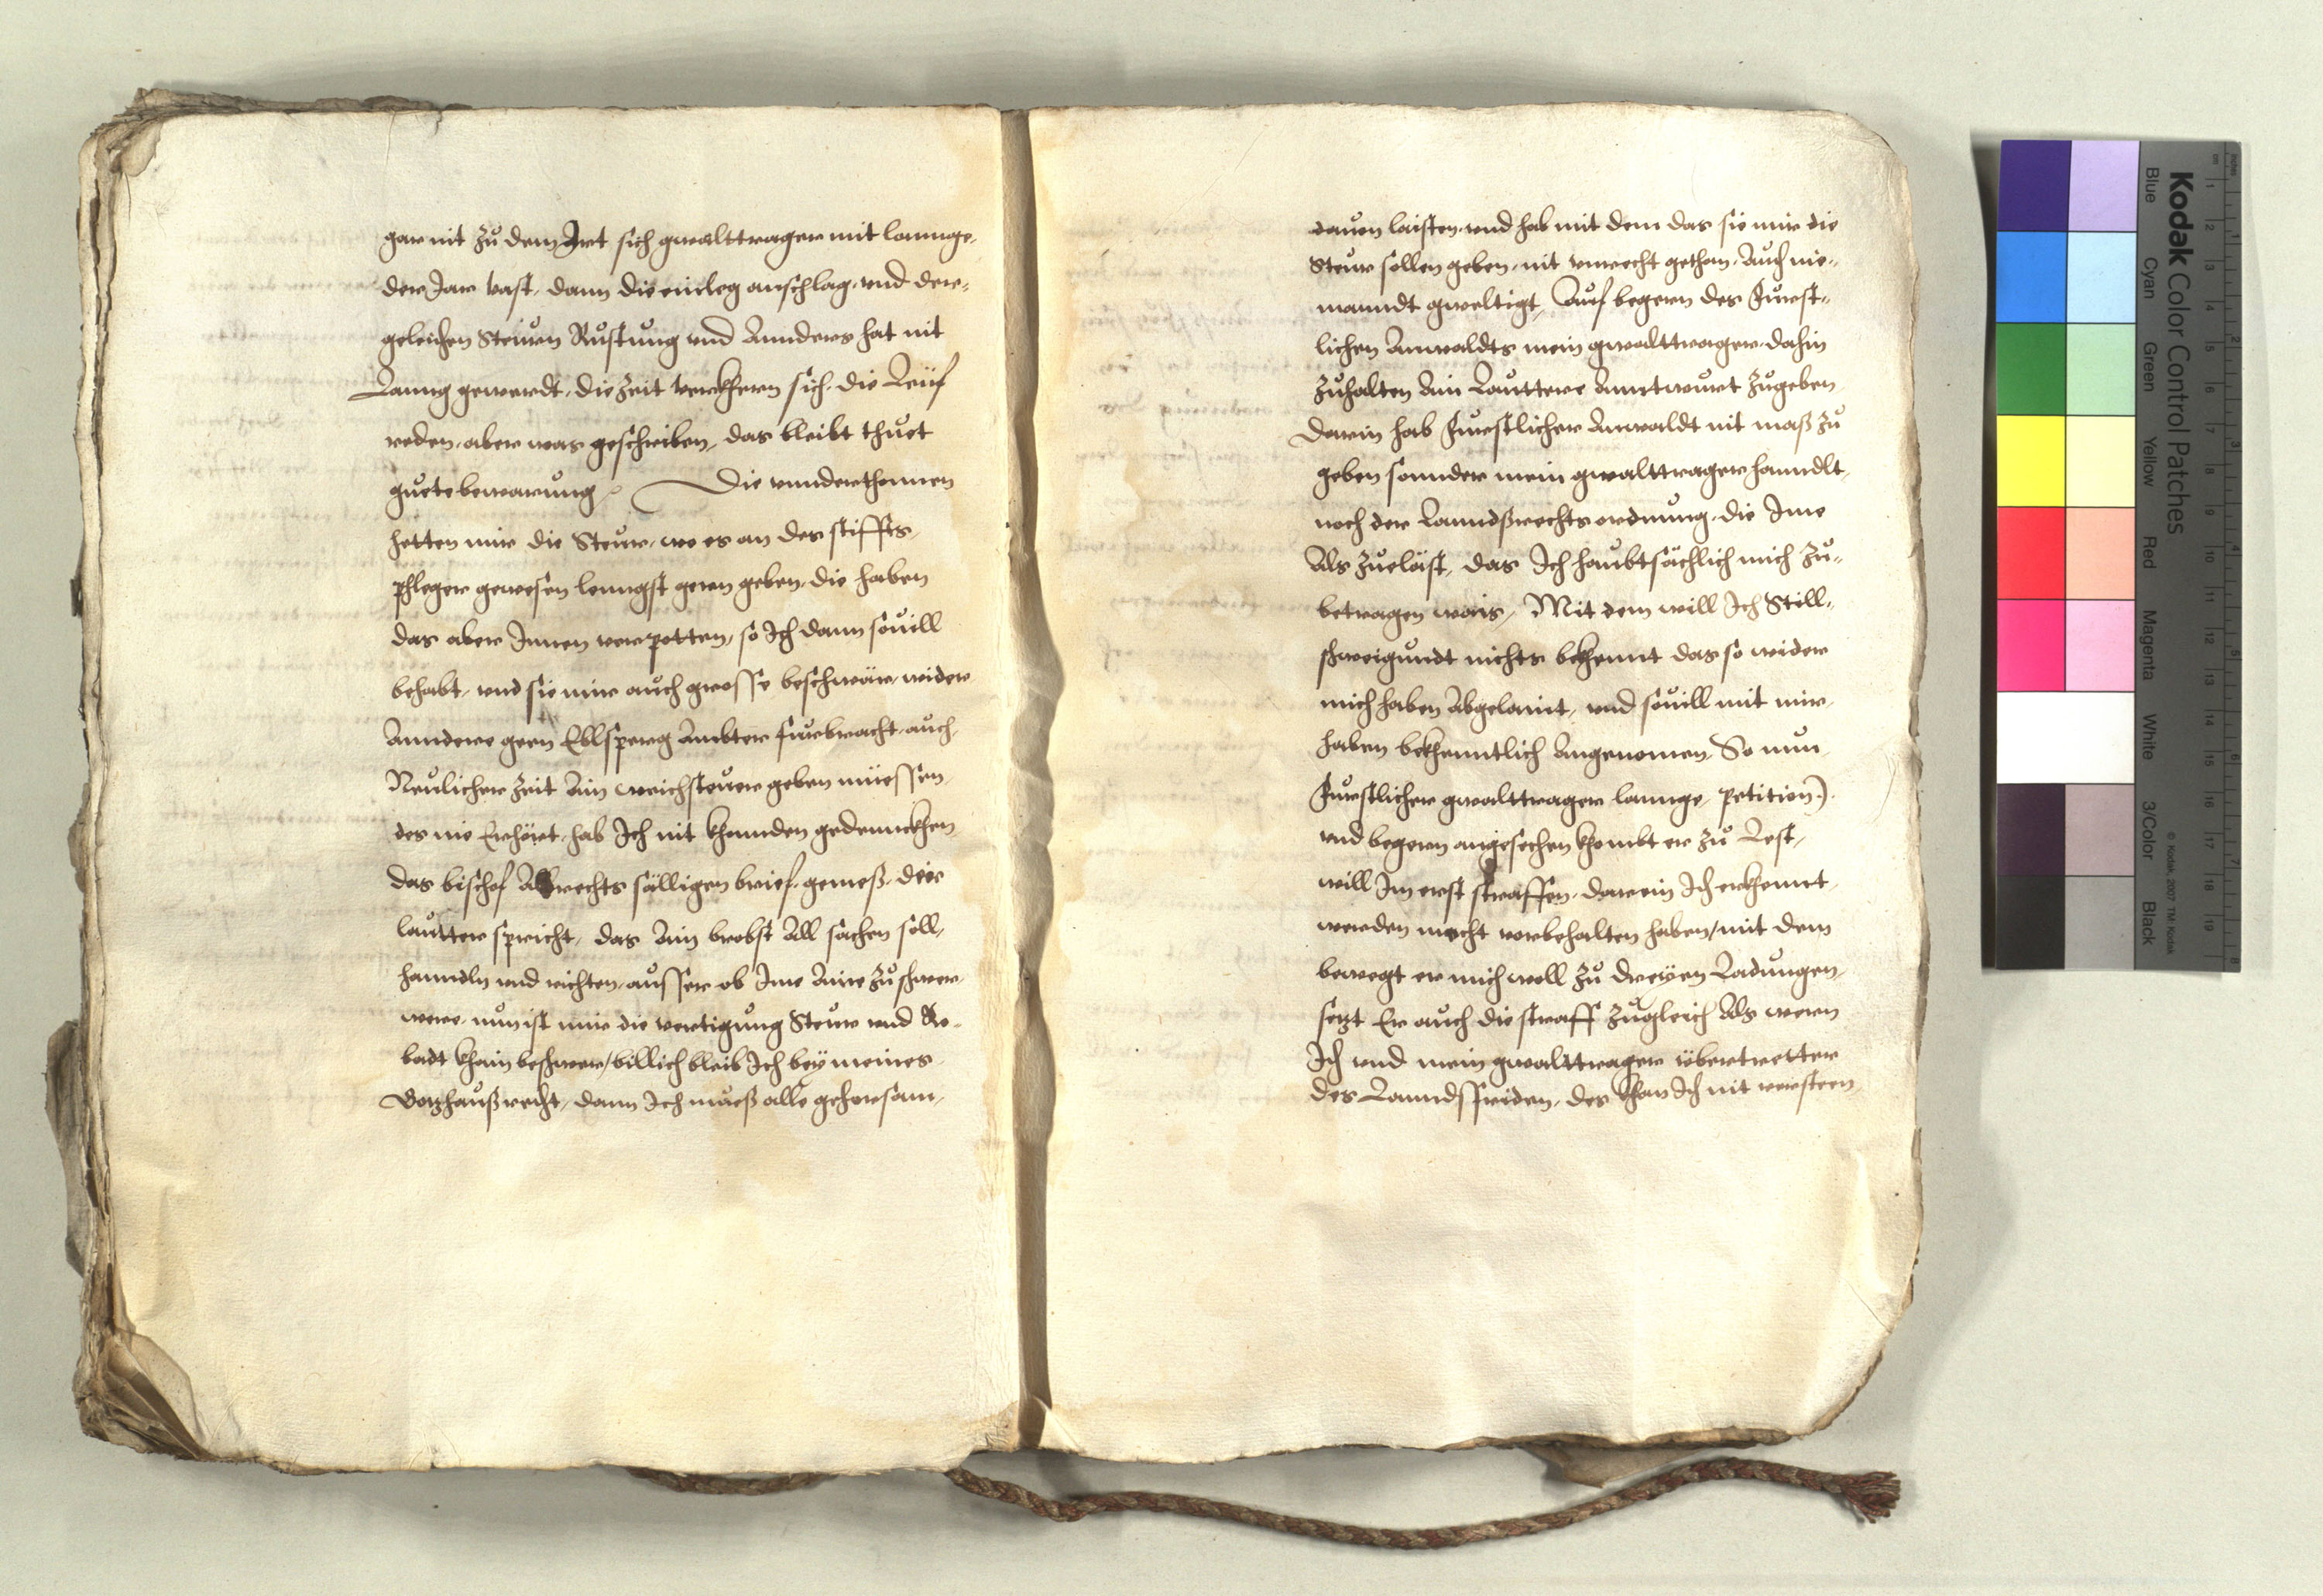 gar nit zu dem Irt sich gwalttrager mit lannge,
der Jar vast, dann die einleg anschlag, und der-
geleichen Steurn Rustung und Annders hat nit
Lanng gewerdt, die zeit verckhern sich, die Leüf
reden, aber was geschriben, das bleibt thuet
guete bewarung Die unnderthonnen
hetten mir die Steur, wo es an des stiffts,
pfleger gewesen lenngst gern geben, die haben
das aber Innen verpotten, so Ich dann souill
behabt, und sie mir auch grosse beschwär, wider
Anndere geen Eblsperg Ambter furbracht, auch,
Neulicher zeit Ain weichsteuer geben müessen,
des nie Erhört, hab Ich nit khunden gedennckhen
das bischof Albrechts sälligen brief, gemeß, der
lautter spricht, das Ain brobst All sachen soll,
hanndln und richten, ausser ob Ime Aine zu schwer,
were, nun ist mir die vertigung Steur und Ro-
badt khain beschwer, billich bleib Ich bey meines
Gotzhauß recht, dann Ich mueß alle gehorsam,
dauon laisten, und hab mit dem das sie mir die
Steur sollen geben, nit unrecht gethon, Auch nie-
manndt gweltigt, Auf begern des Furst-
lichen Anwaldts mein gwalttrager, dahin
zuhalten Ain Lauttere Anntwurt zugeben
Darin hab Furstlicher Anwaldt nit maß zu
geben sonnder mein gwalttrager hanndlt,
noch der Lanndßrechts ordnung, die Ime
Als zueläst, das Ich haubtsächlich mich zu-
betragen wais, Mit dem will Ich Still-
schweigundt nichts bekhennt das so wider
mich haben Abgelaint, und souill mit mir,
haben bekhenntlich Angenomen, So nun,
Furstlicher gwalttrager lannge, petition,
und begern angesechen khombt er zu Lest,
will Im erst straffen, darein Ich erkhennt,
werden mecht vorbehalten haben, mit dem
bewegt er mich woll zu dreyen Ladungen,
setzt Er auch die straff zugleich Als wern
Ich und mein gwalttrager übertretter
des Lanndsfriden, des khan Ich nit versteen,
Kodak Color Control Patches
Blue Cyan Green Yellow Red Magenta White 3/Color Black
© Kodak, 2007 TM: Kodak